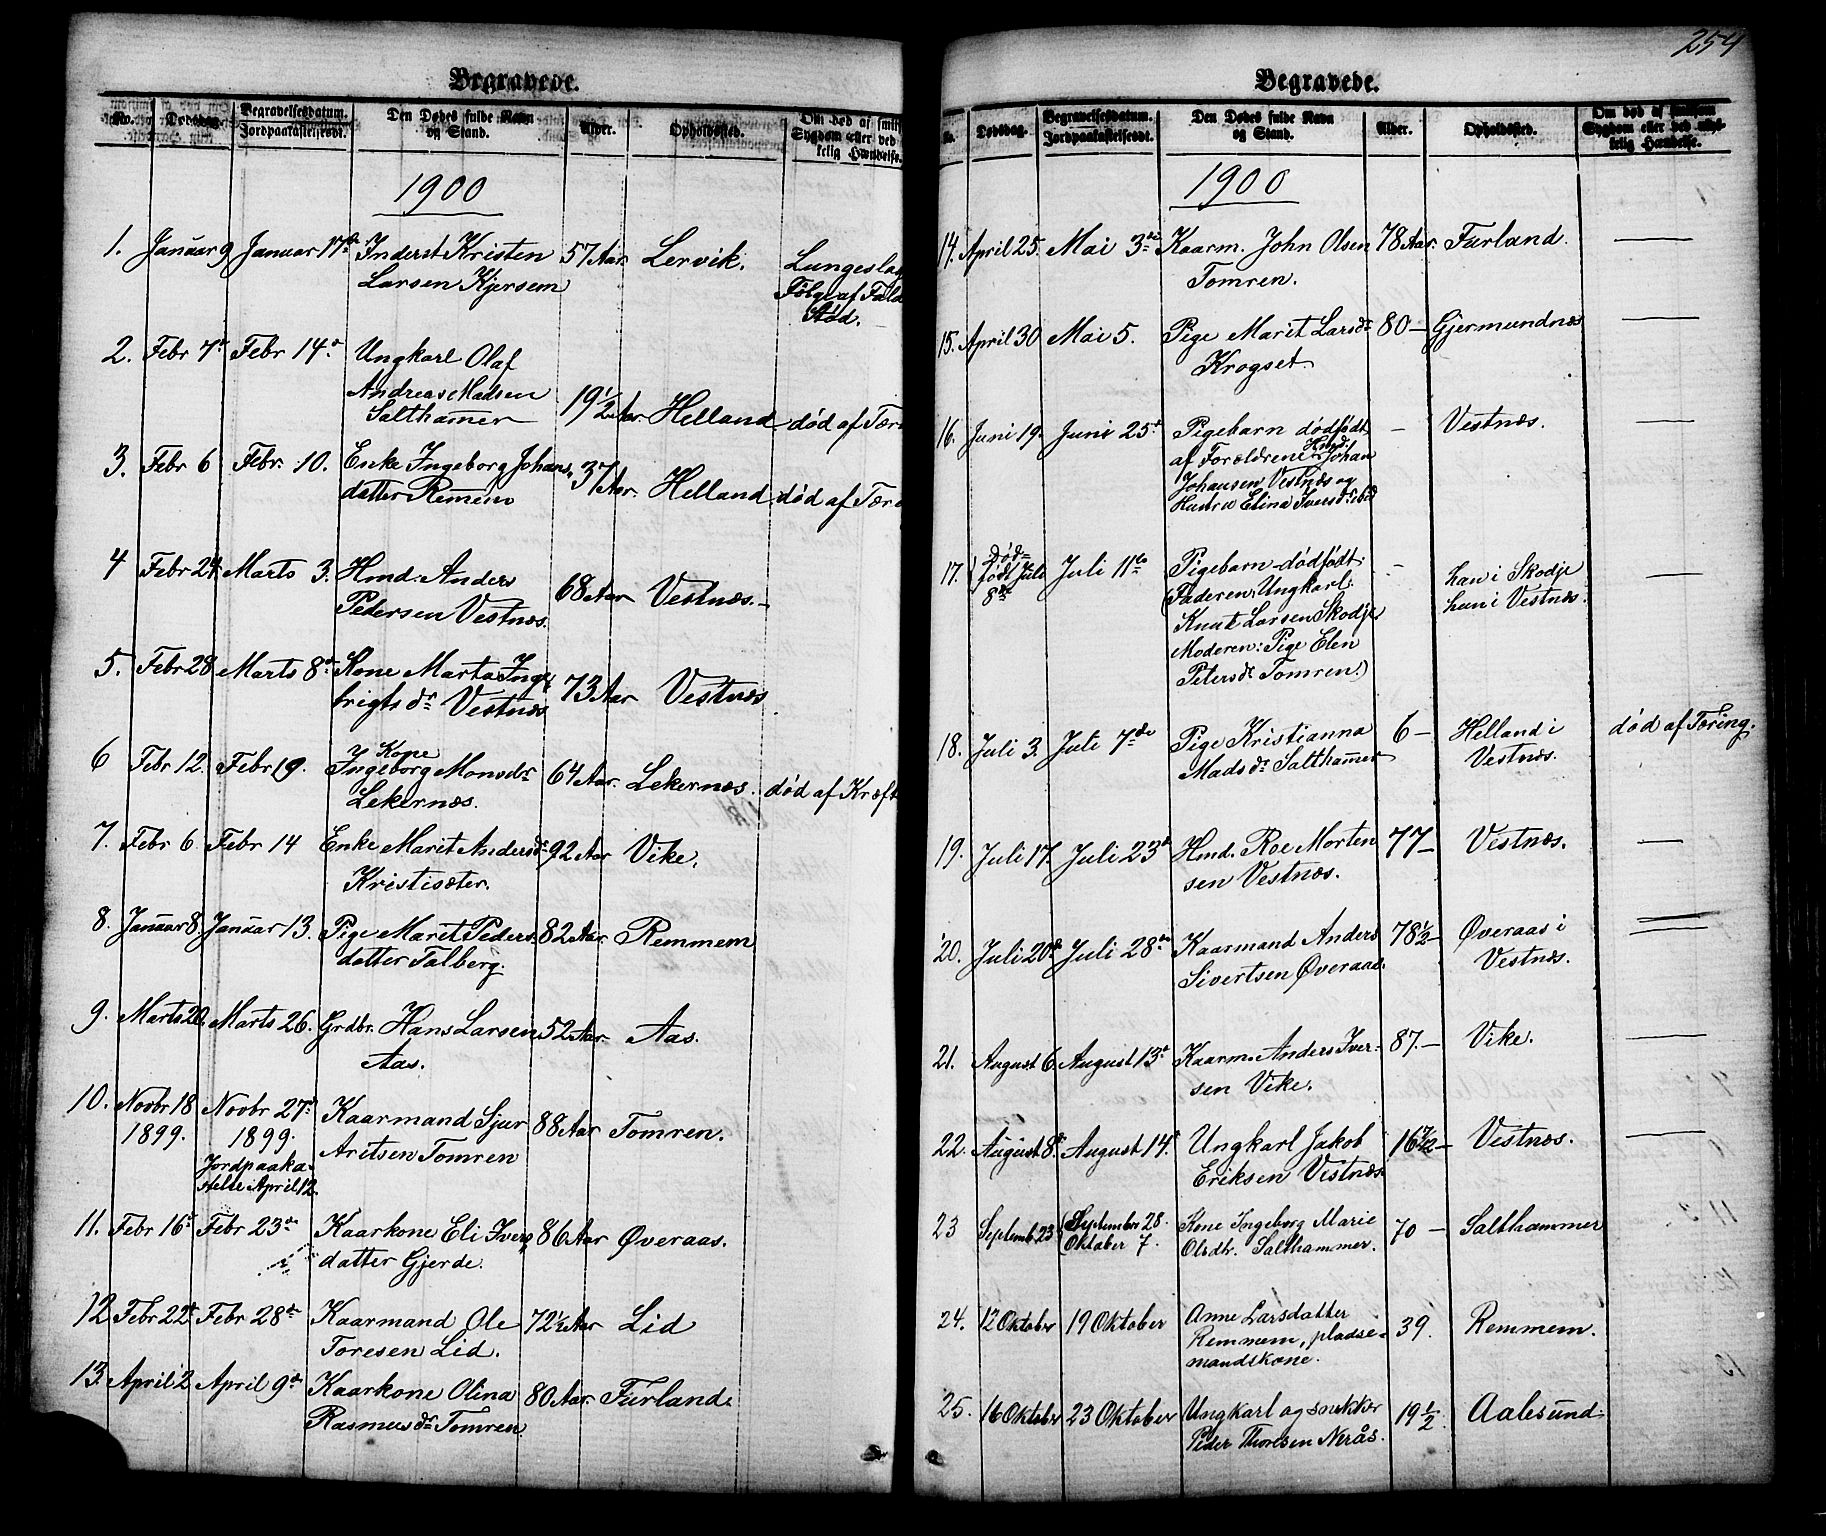 254
Begravede.
No.
Dødsdag.
Begravelsesdatum.
Jordpaakastelsesdt.
Den Dødes fulde Navn
og Stand.
Alder.
Opholdssted.
Om død af smit
Sygdom eller ved
kelig Hændelse.
1900
1. Januar 9 Januar 17de Inderst Kristen 57 Aar. Lervik. Lungeslag
Larsen Kjersem Følge af Fald
Stød.
2. Febr 7d Febr 14d Ungkarl Olaf
Andreas Madsen
Salthamer 19 1/2 Aar. Helland død af Tær
3. Febr 6 Febr. 10. Enke Ingeborg Johans 37 Aar. Helland død af Tær
datter Remem
4 Febr 24 Marts 3. Hmd. Anders 68 Aar Vestnæs.
Pedersen Vestnæs.
5. Febr 28 Marts 8d Kone Marta Inge 73 Aar Vestnæs
brigts dr Vestnæs
6 Febr 12. Febr 19. Kone
Ingeborg Monsdr 64 Aar. Lekernæs. død af Kræft
Lekernæs.
7. Febr 6. Febr 14 Enke Marit Andersd 92 Aar Vike.
Kristisæter.
8. Januar 8. Januar 13. Pige Marit Peders 82 Aar. Remmem
datter Talberg.
9. Marts 20. Marts 26. Grdbr. Hans Larsen 52 Aar. Aas.
Aas.
10. Novbr 18 Novbr 27d Kaarmand Sjur 88 Aar Tomren.
1899. 1899. Aritsen Tomren
Jordpaaka
stelse April 12.
11. Febr 16d Febr 23de Kaarkone Eli Ivers 86 Aar Øveraas.
datter Gjerde.
12 Febr 22d Febr 28de Kaarmand Ole 72 1/2 Aar Lid
Toresen Lid.
13. April 2 April 9de Kaarkone Olina 80 Aar. Furland.
Rasmusdr Tomren.
Begravede.
No.
Dødsdag.
Begravelsesdatum.
Jordpaakastelsesdt.
Den Dødes fulde Navn
og Stand.
Alder.
Opholdssted.
Om død af smitsom
Sygdom eller ved ulyk-
kelig Hændelse.
1900
14. April 25. Mai 3die Kaarm. John Olsen 78 Aar. Furland. —
Tomren.
15. April 30 Mai 5. Pige Marit Larsdr 80 — Gjermundnæs —
Krogset.
16. Juni 19. Juni 25d Pigebarn dødfødt — Vestnæs. —
af Forældrene Hmd. Johan
Johansen Vestnæs og
Hustru Elina Iversdr ibid
17. Død-
født Juli
8de Juli 11te Pigebarn dødfødt — han i Skodje —
(Faderen, Ungkarl hun i Vestnæs.
Knut Larsen Skodje
Moderen: Pige Elen
Petersdr Tomren.)
18. Juli 3. Juli 7de Pige Kristianna 6 — Helland i død af Tæring.
Mads dr Salthamer Vestnæs.
19. Juli 17. Juli 23d Hmd. Roe Morten 77 — Vestnæs. —
sen Vestnæs.
20. Juli 20d Juli 28de Kaarmand Anders 78 1/2 — Øveraas i —
Sivertsen Øveraas. Vestnæs.
21. August 6. August 13d Kaarm. Anders Iver- 87. — Vike. —
sen Vike.
22. August 8d August 14d Ungkarl Jakob 16 7/12 — Vestnæs. —
Eriksen Vestnæs
23 Septemb. 23 September 28. Kone Ingeborg Marie 70 — Salthammer
Oktober 7. Olsdtr. Salthammer.
24. 12 Oktober 19 Oktober Anne Larsdatter 39. Remmem.
Remmem, pladse-
mandskone.
25. 16 Oktober 23 Oktober Ungkarl og snekker 19 1/2. Aalesund.
Peder Thoresen Nerås.